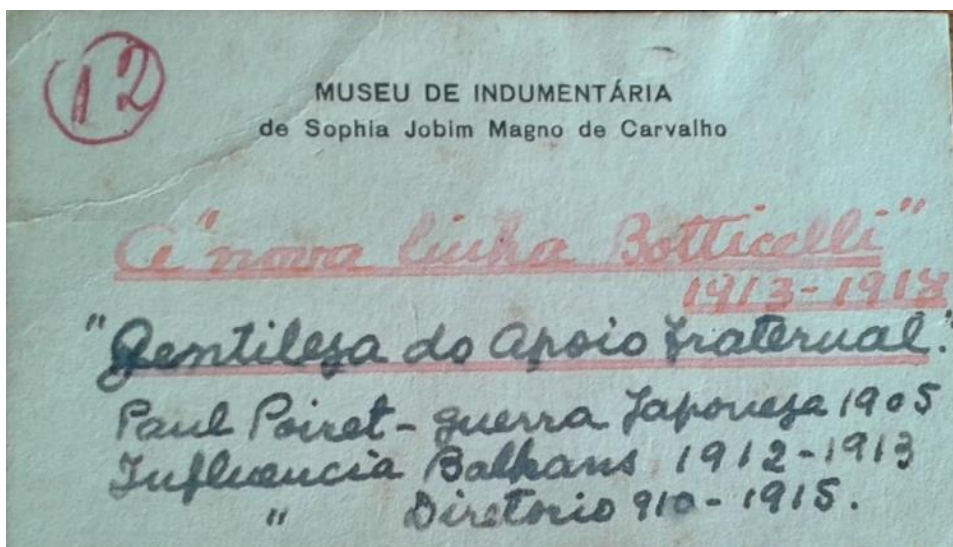 12
MUSEU DE INDUMENTÁRIA
de Sophia Jobim Magno de Carvalho
A "nova linha Botticelli"
1913-1918
"Gentileza do Apoio Fraternal."
Paul Poiret - guerra Japoneza 1905
Influencia Balkans 1912-1913
" Diretorio 910-1915.